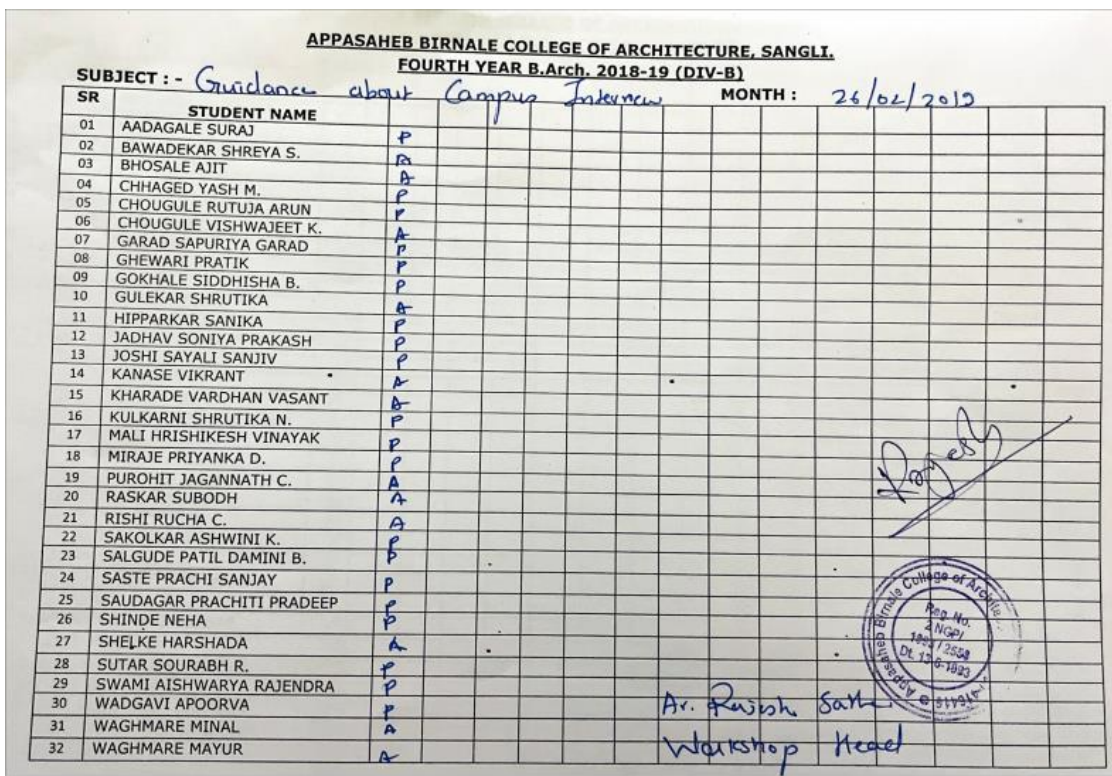 APPASAHEB BIRNALE COLLEGE OF ARCHITECTURE, SANGLI.
FOURTH YEAR B.Arch. 2018-19 (DIV-B)
SUBJECT : - Guidance about Campus Interview MONTH : 26/02/2019
SR STUDENT NAME
01 AADAGALE SURAJ P
02 BAWADEKAR SHREYA S.
03 BHOSALE AJIT A
04 CHHAGED YASH M. P
05 CHOUGULE RUTUJA ARUN P
06 CHOUGULE VISHWAJEET K. A
07 GARAD SAPURIYA GARAD P
08 GHEWARI PRATIK P
09 GOKHALE SIDDHISHA B. P
10 GULEKAR SHRUTIKA A
11 HIPPARKAR SANIKA P
12 JADHAV SONIYA PRAKASH P
13 JOSHI SAYALI SANJIV P
14 KANASE VIKRANT A
15 KHARADE VARDHAN VASANT A
16 KULKARNI SHRUTIKA N. P
17 MALI HRISHIKESH VINAYAK P
18 MIRAJE PRIYANKA D. P
19 PUROHIT JAGANNATH C. A
20 RASKAR SUBODH A
21 RISHI RUCHA C. A
22 SAKOLKAR ASHWINI K. P
23 SALGUDE PATIL DAMINI B. P
24 SASTE PRACHI SANJAY P
25 SAUDAGAR PRACHITI PRADEEP P
26 SHINDE NEHA P
27 SHELKE HARSHADA A
28 SUTAR SOURABH R. P
29 SWAMI AISHWARYA RAJENDRA P
30 WADGAVI APOORVA P
31 WAGHMARE MINAL A
32 WAGHMARE MAYUR A
Appasaheb Birnale College of
Reg. No.
Dt. 13-6-1993
Ar. Rajesh
Workshop Head